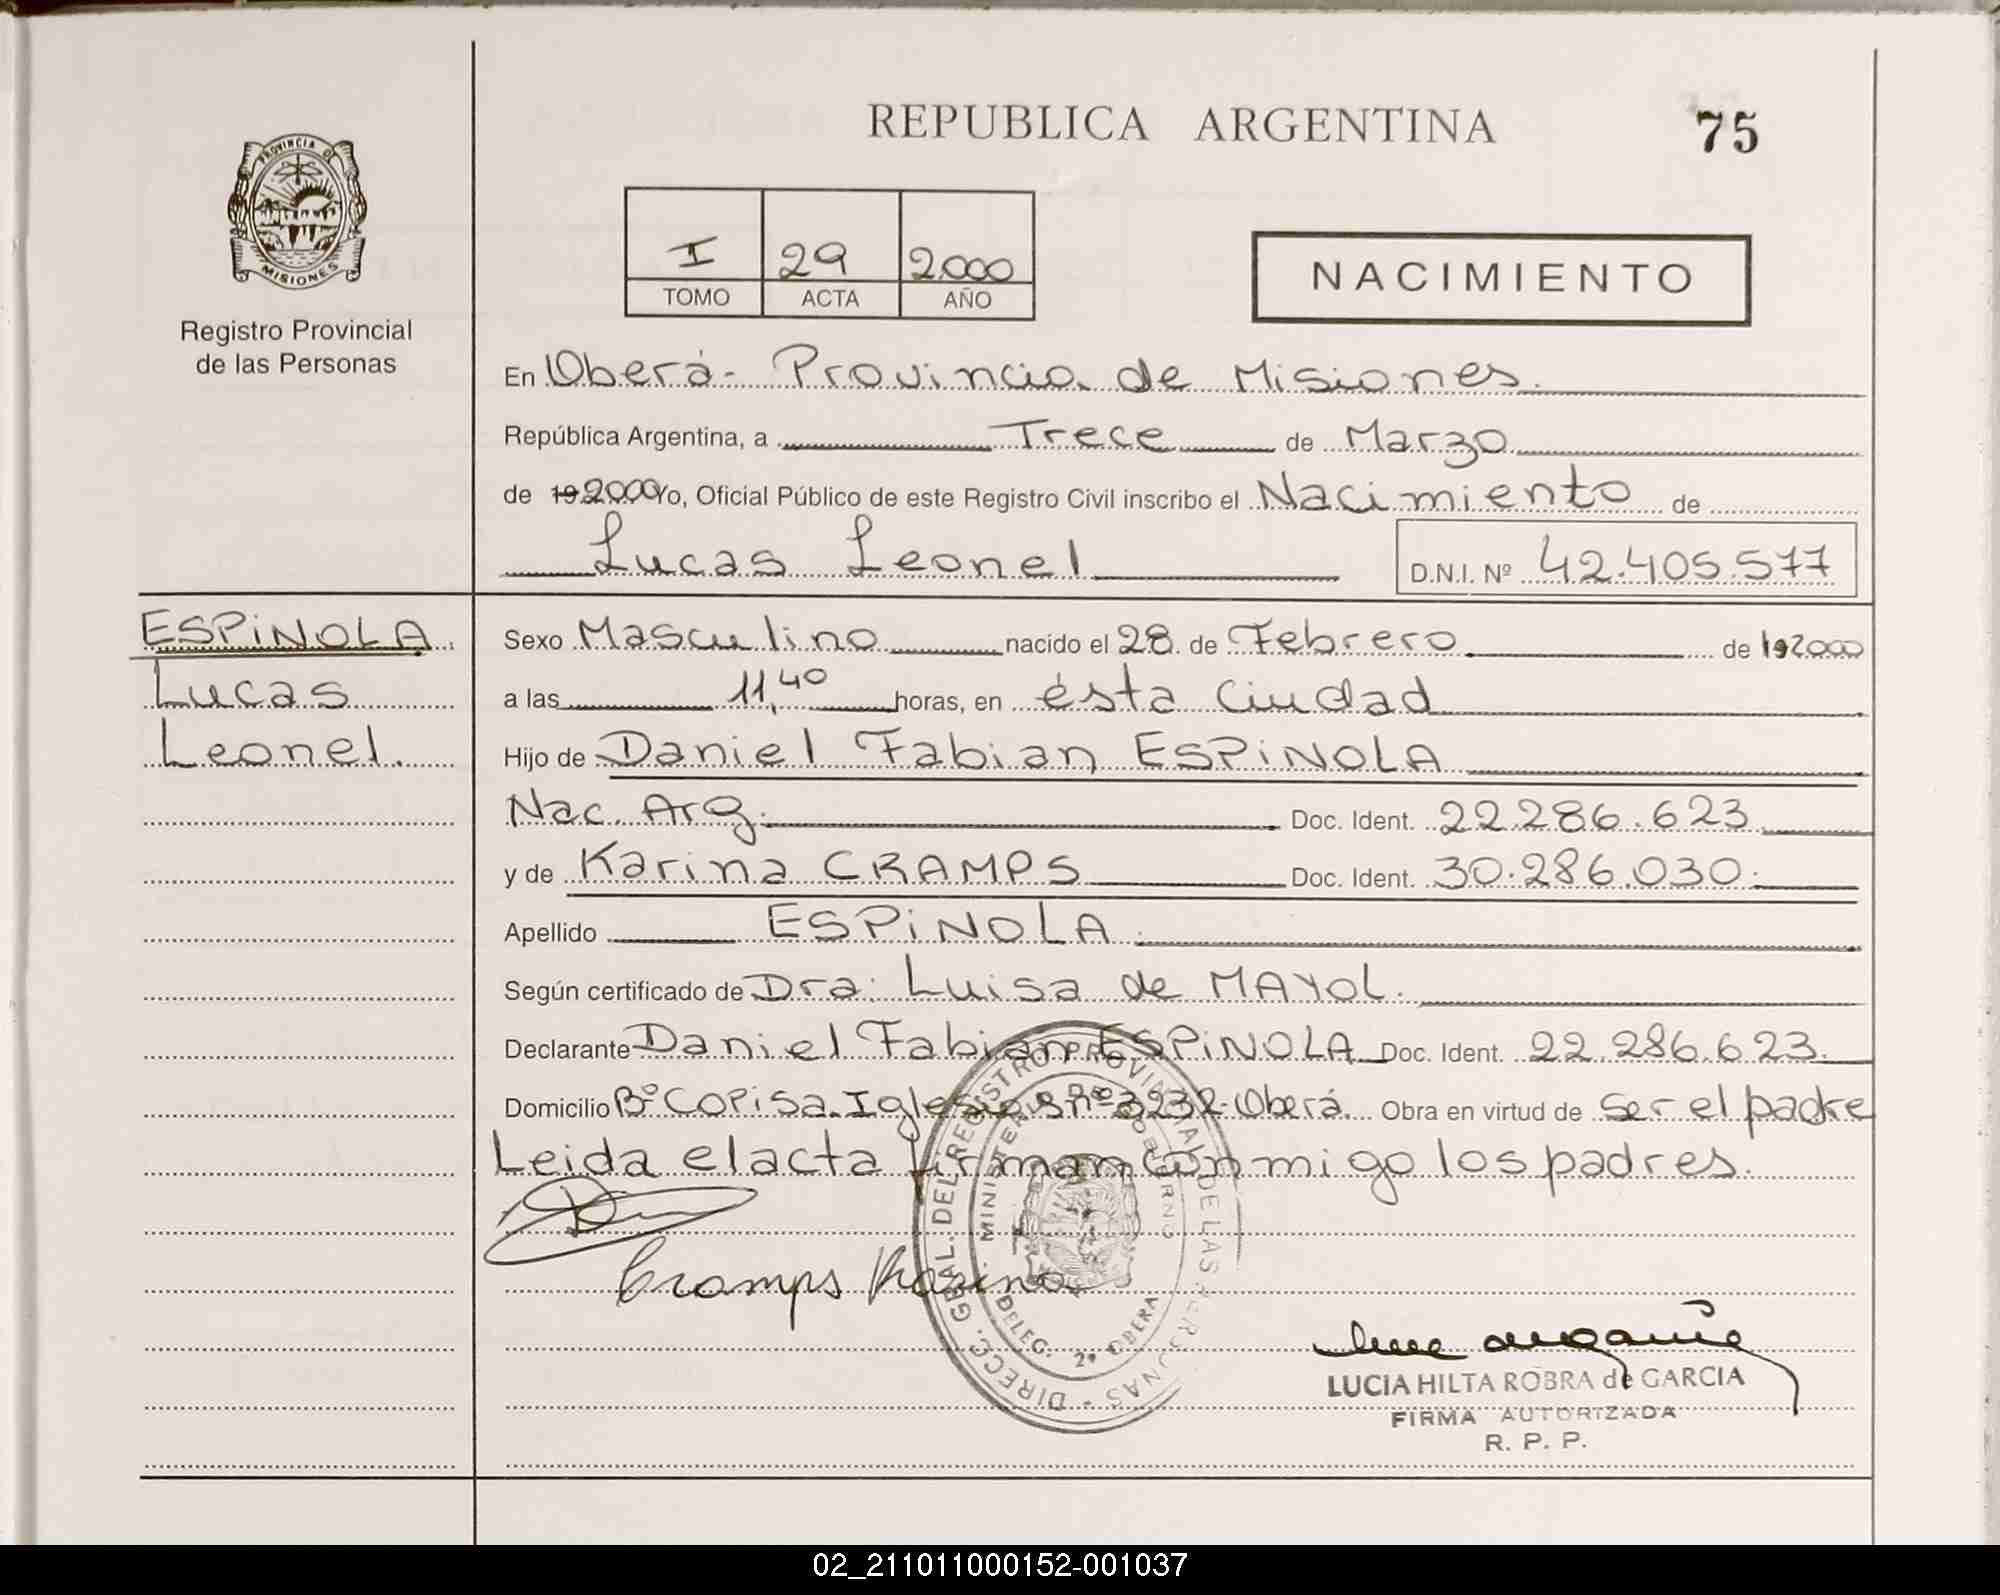 REPUBLICA ARGENTINA
75
PROVINCIA DE
MISIONES
Registro Provincial
de las Personas
I 29 2.000
TOMO ACTA AÑO
NACIMIENTO
En Oberá- Provincia de Misiones.
República Argentina, a Trece de Marzo
de 19 2000 Yo, Oficial Público de este Registro Civil inscribo el Nacimiento de
Lucas Leonel D.N.I. Nº 42.405.577
ESPiNOLA.
Lucas
Leonel.
Sexo Masculino nacido el 28 de Febrero de 19 2000
a las 11,40 horas, en ésta Ciudad
Hijo de Daniel Fabian ESPiNOLA
Nac. Arg. Doc. Ident. 22.286.623
y de Karina CRAMPS Doc. Ident. 30.286.030.
Apellido ESPiNOLA.
Según certificado de Dra: Luisa de MAYOL.
Declarante Daniel Fabian ESPiNOLA Doc. Ident. 22.286.623.
Domicilio Bº Copisa. Iglesias nº 3232-Oberá. Obra en virtud de ser el padre
Leida el acta firman conmigo los padres.
Cramps Karina
DIRECC. GRAL. DEL REGISTRO PROVINCIAL DE LAS PERSONAS -
MINISTERIO DE GOBIERNO
DELEG. 2º OBERA
LUCIA HILTA ROBRA de GARCIA
FIRMA AUTORIZADA
R. P. P.
02_211011000152-001037